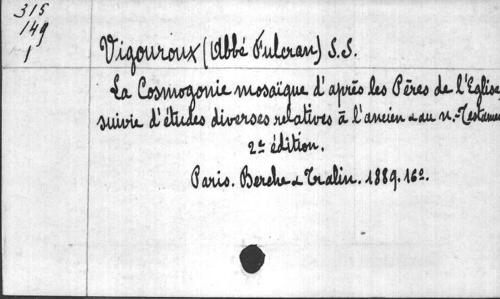 315
149
1
Vigouroux (Abbé Fulcran) S.S.
La Cosmogonie mosaïque d'après les Pères de l'Eglise
suivie d'études diverses relatives à l'ancien & au n.-Testamen
2e édition.
Paris. Berche & Tralin. 1889. 16º.